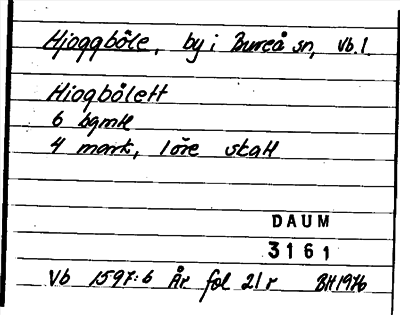 Hjoggböle, by i Bureå sn, Vb.l.
Hiogbölett
6 bgmk
4 mark, 1 öre skatt
DAUM
3161
Vb 1597:6 År fol 21r BH1976